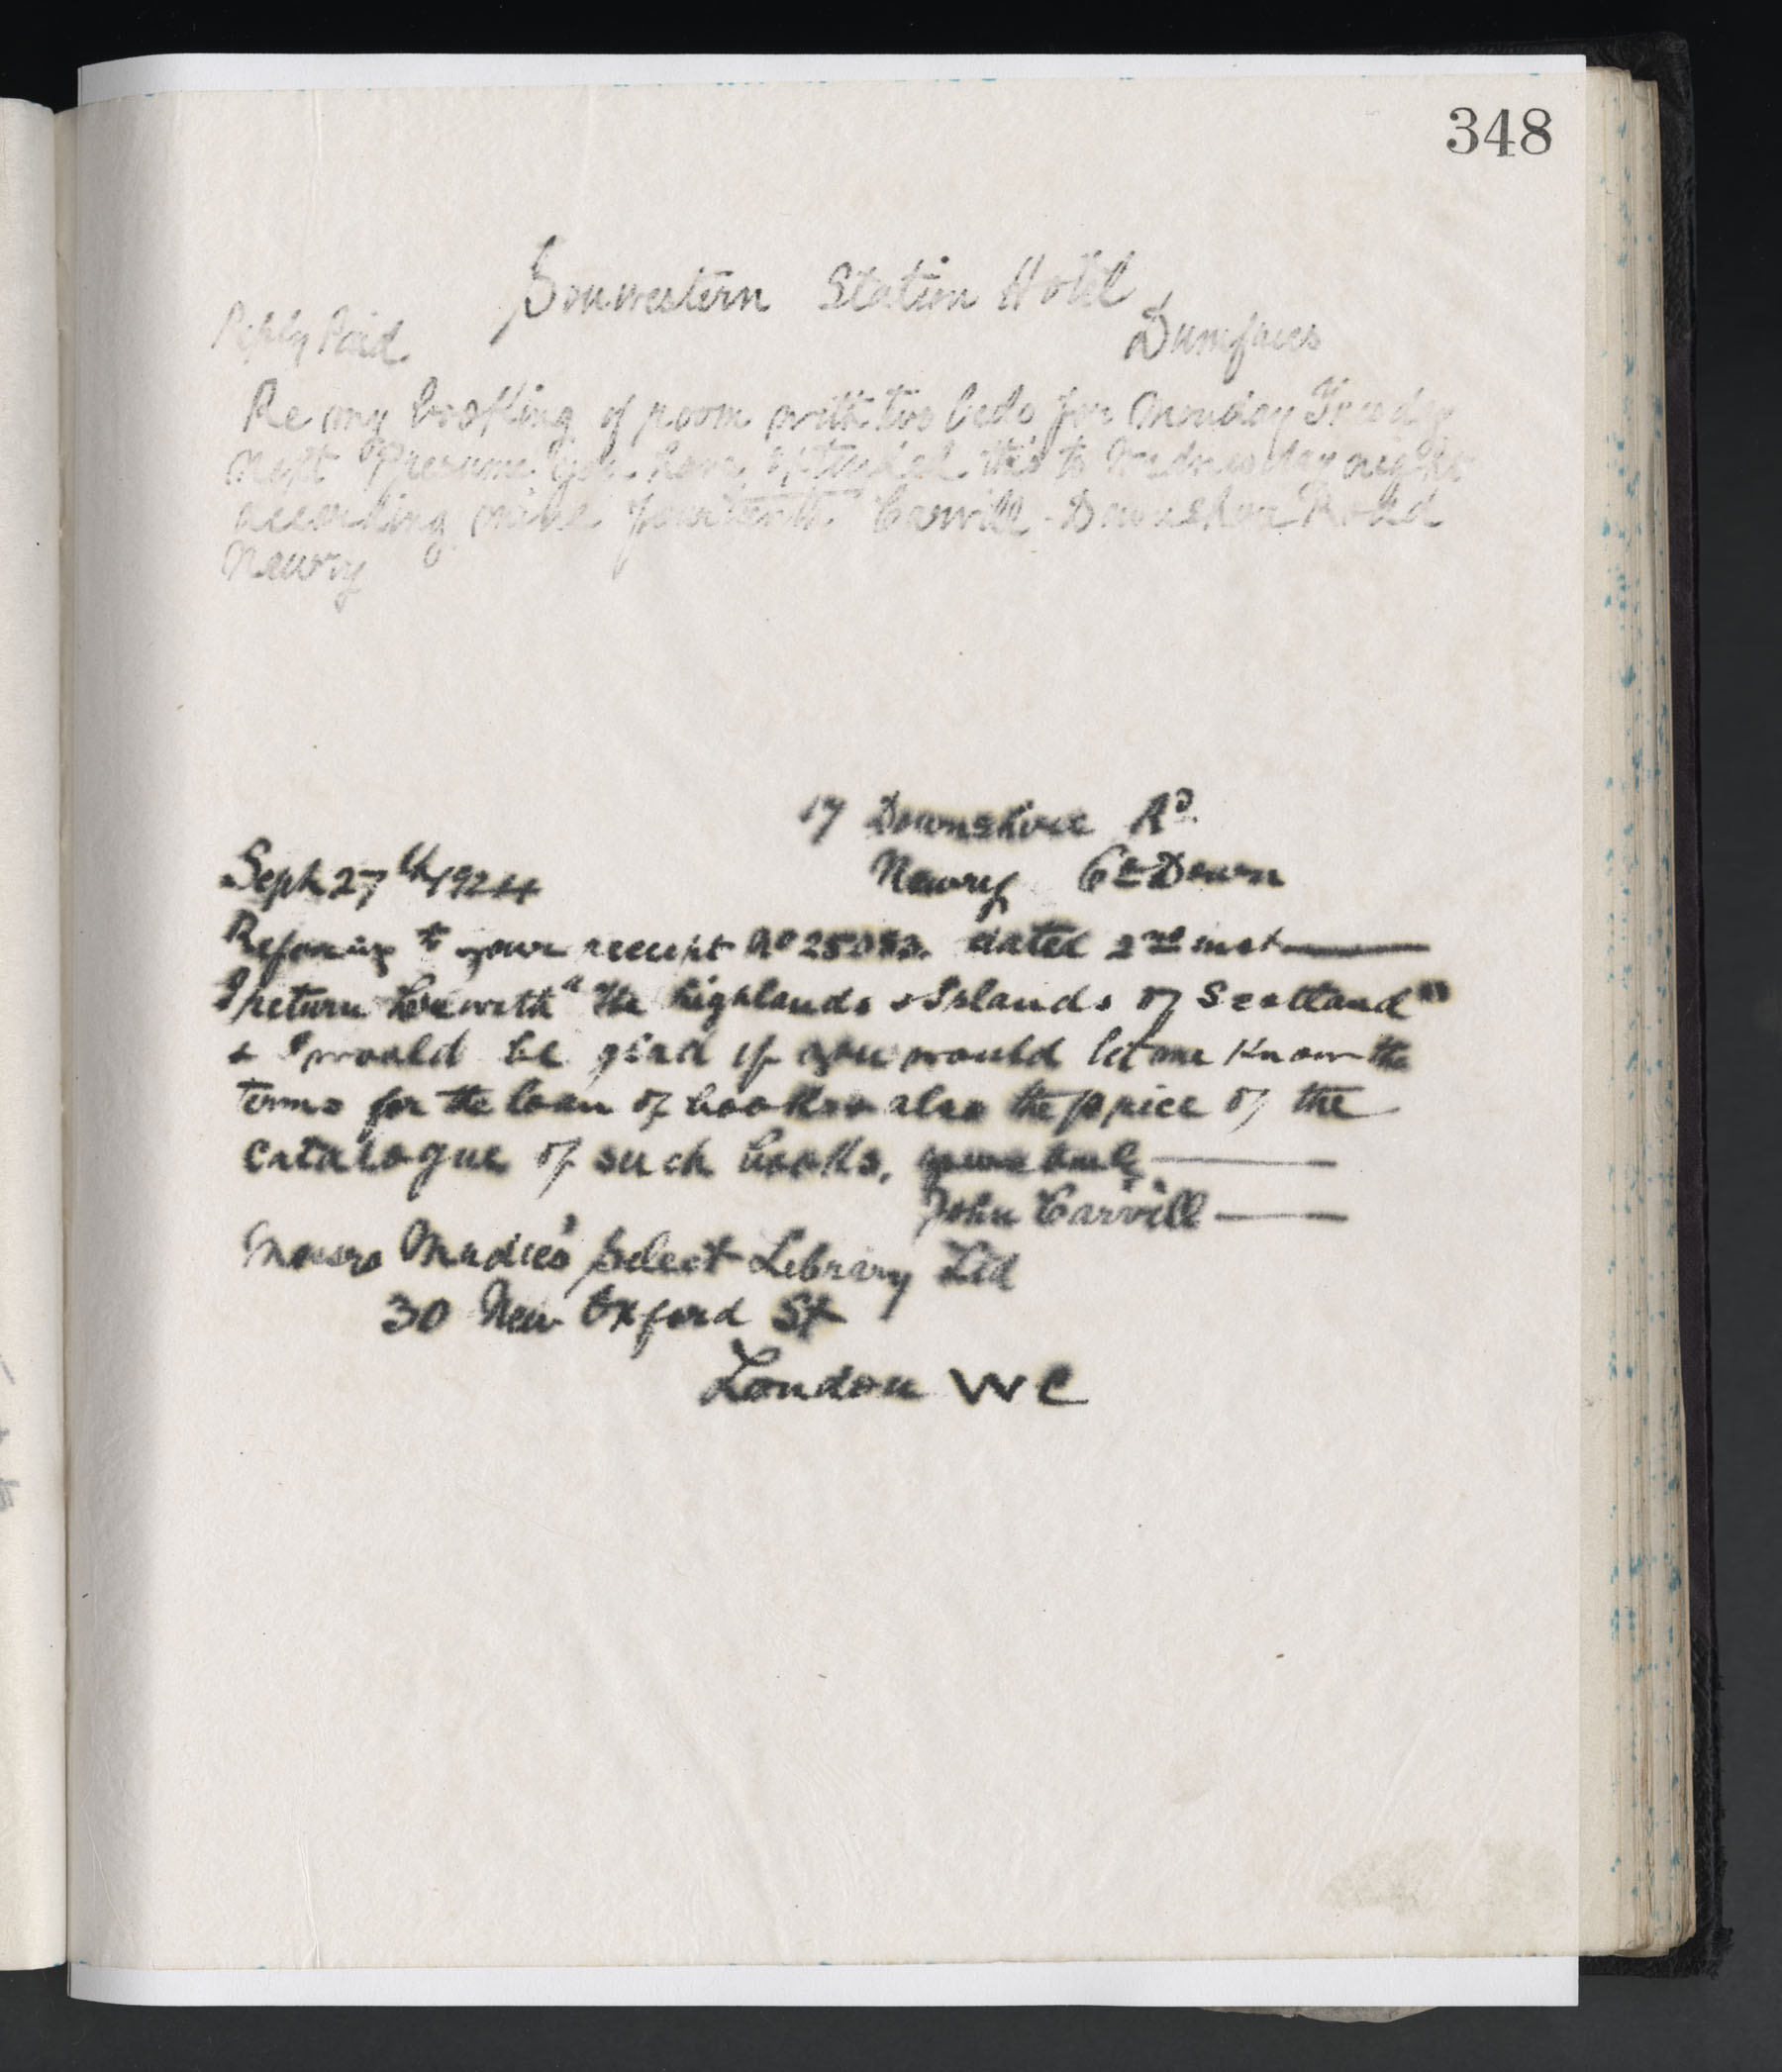 348
Souwestern Station Hotel
Dumfries
Reply Paid
Re my booking of room with two beds for Monday Tuesday
next Presume you have extended this to Wednesday night
according mine fourteenth Carvill - Downshire Road
Newry
17 Downshire Rd.
Newry Co Down
Sept 27th 1924
Referring to your receipt No dated 2nd inst
I return herewith "The highlands & Islands of Scotland"
& I would be glad if you would let me know the
terms for the loan of books & also the price of the
catalogue of such books, yours truly
John Carvill
Messrs Mudie's Select Library Ltd
30 New Oxford St
London WC